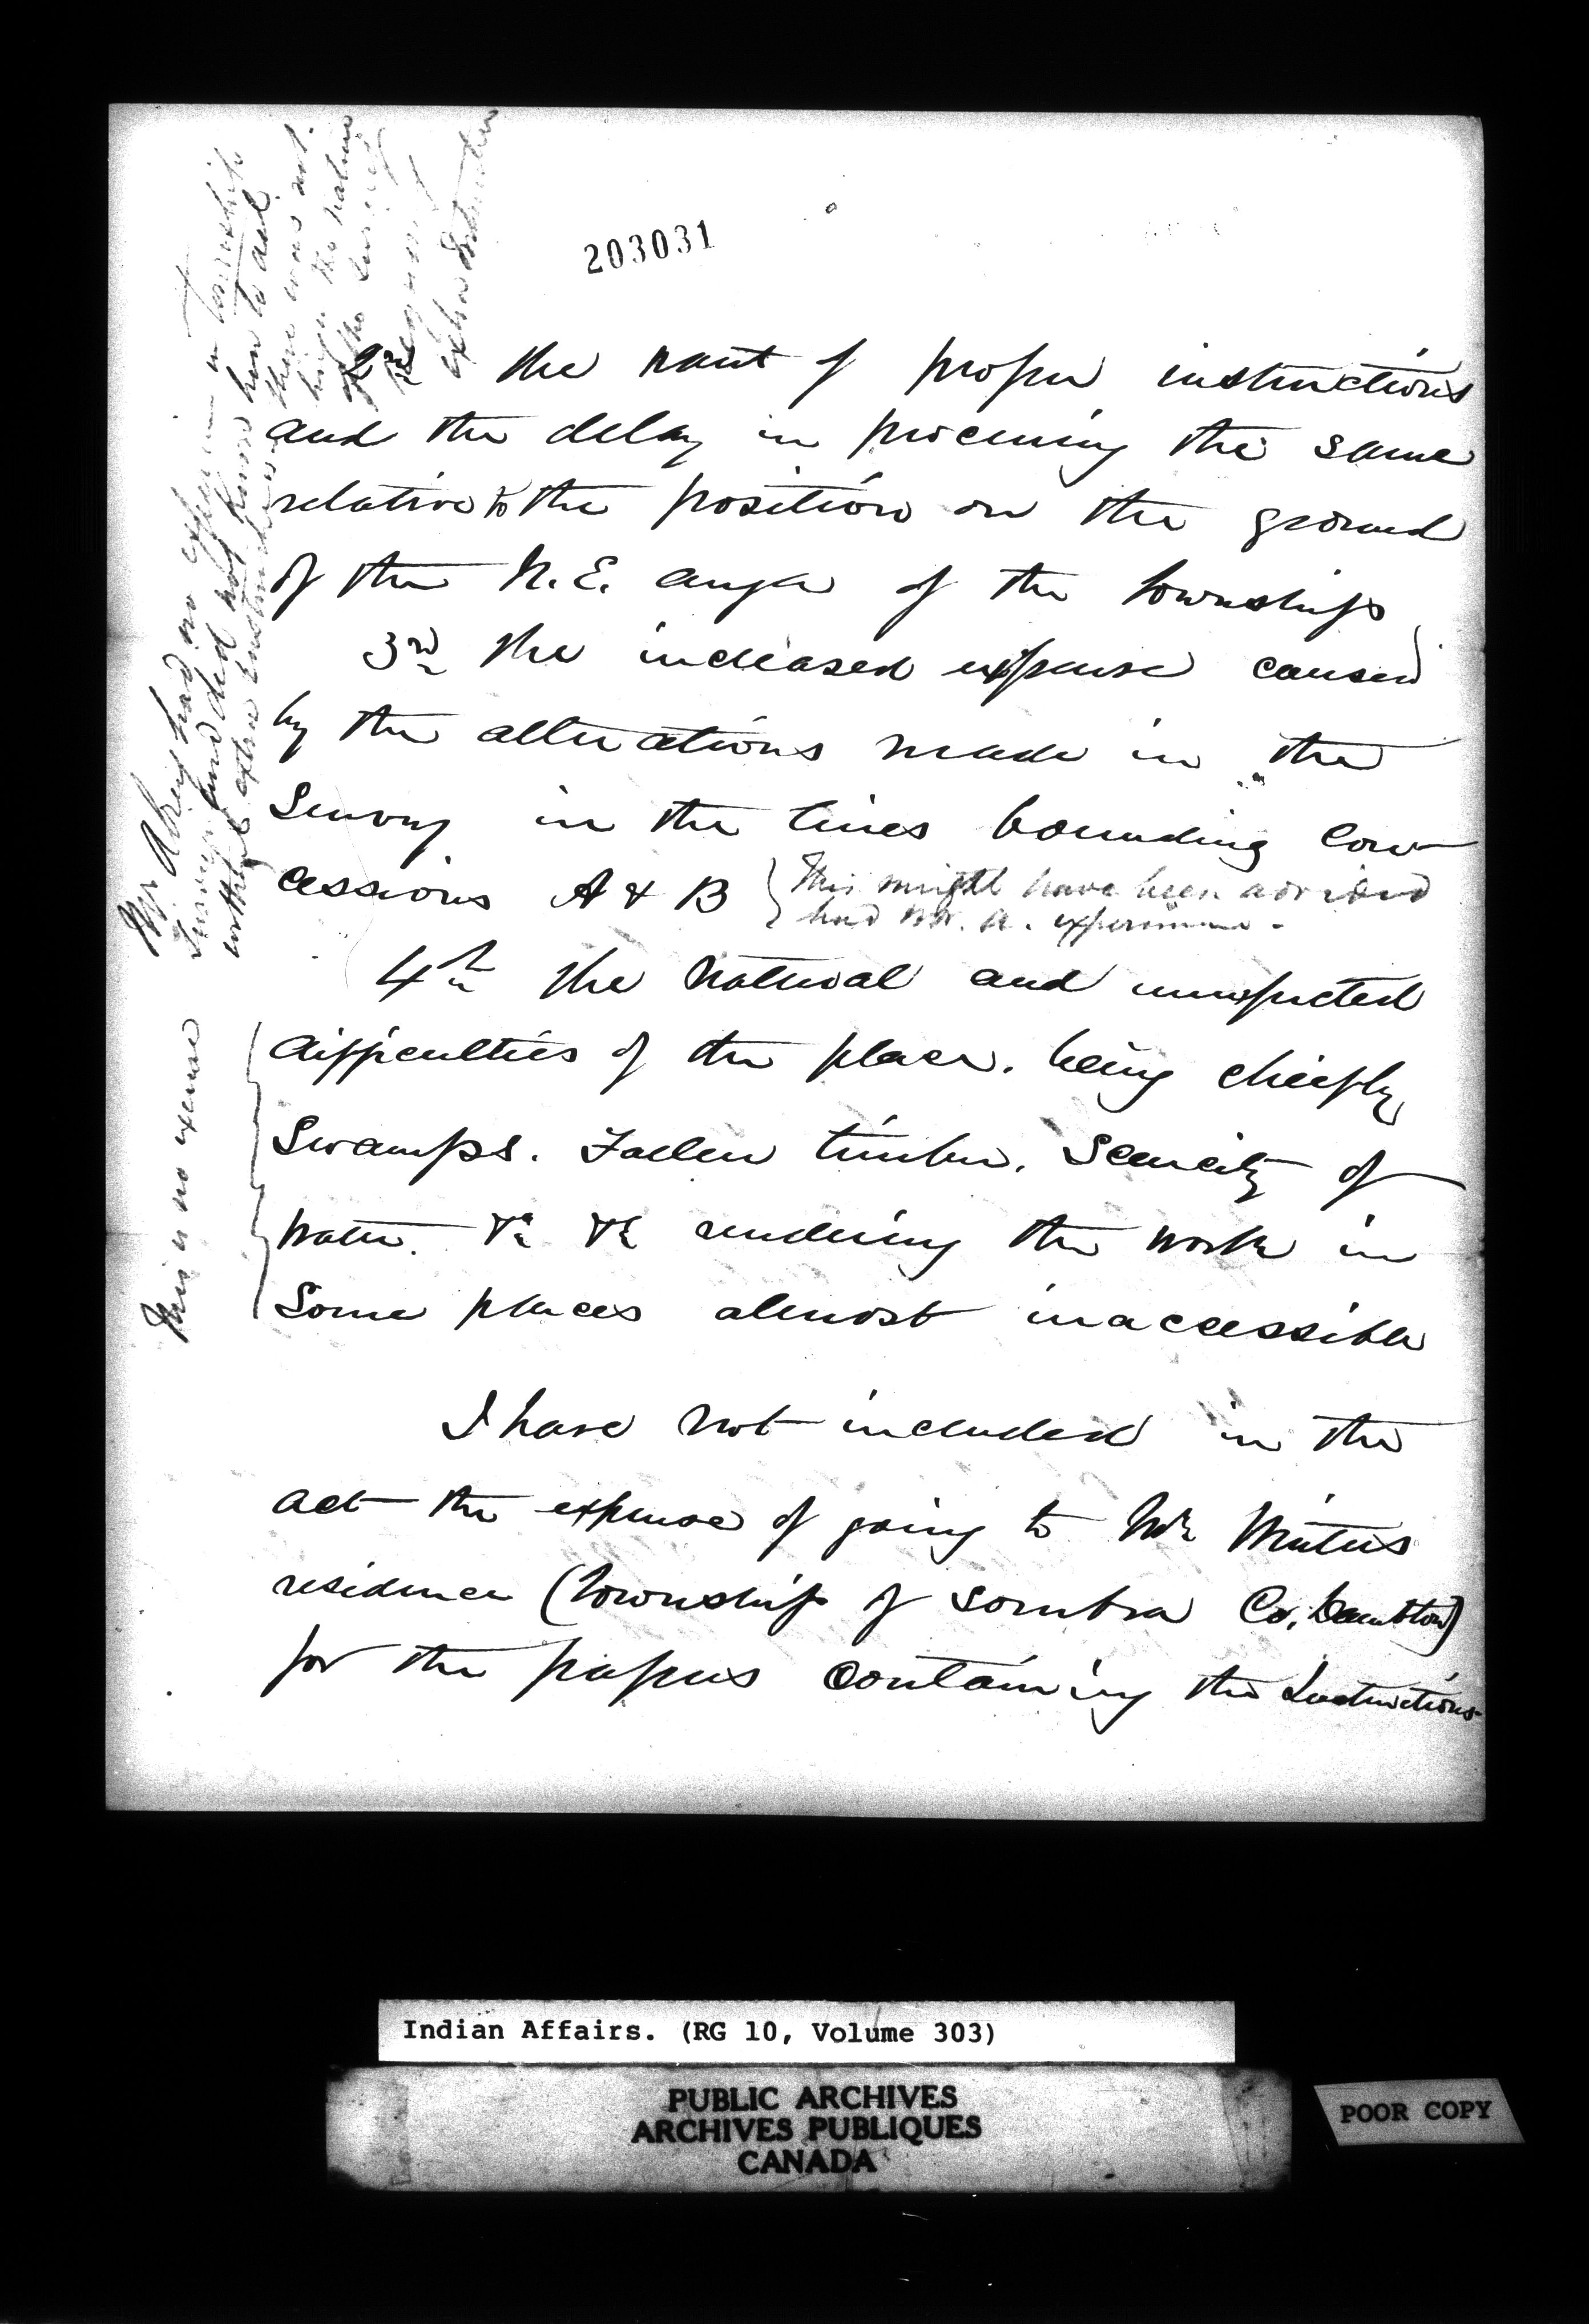 203031
2nd the want of proper instructions
and the delay in procuring the same
relative to the position on the ground
of the N.E. angle of the township
3rd the increased expense caused
by the alterations made in the
Survey in the lines bounding Con-
cessions A & B
This might have been avoided
had Mr. A. experience.
4th the natural and unexpected
difficulties of the place. being chiefly
Swamps. Fallen timber. Scarcity of
water. &c &c rendering the work in
Some places almost inaccessible
This is no excuse
I have not included in the
act the expense of going to Mr
residence (township of Sombra Co. Lambton)
for the papers containing the Instructions
Mr Abrey had no experience in township
Surveys and did not know how to act
without extra instructions
there was not
the nature
of the survey
extra Instructions
Indian Affairs. (RG 10, Volume 303)
PUBLIC ARCHIVES
ARCHIVES PUBLIQUES
CANADA
POOR COPY